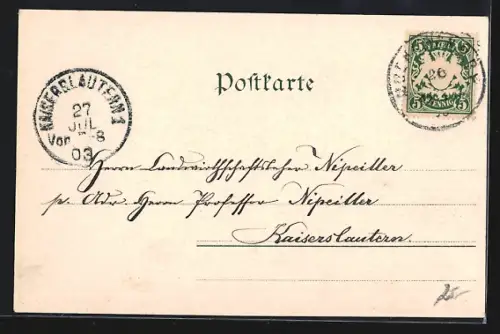 Postkarte
26
5 PFENNIG 5
KAISERSLAUTERN 1
27
JUL
Vor 7-8
03
Herrn Landwirthschaftslehrer Nipeiller
p. Adr. Herrn Professor Nipeiller
Kaiserslautern.
25.-